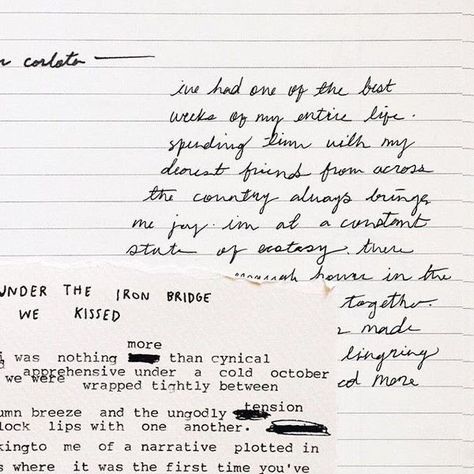 corlota
ive had one of the best
weeks of my entire life.
spending time with my
dearest friends from across
the country always brings
me joy. im at a constant
state of ecstasy. there
hours in the
together.
made
lingring
more
UNDER THE IRON BRIDGE
WE KISSED
more
was nothing than cynical
apprehensive under a cold october
we were wrapped tightly between
tension
umn breeze and the ungodly
lock lips with one another.
kingto me of a narrative plotted in
s where it was the first time you've